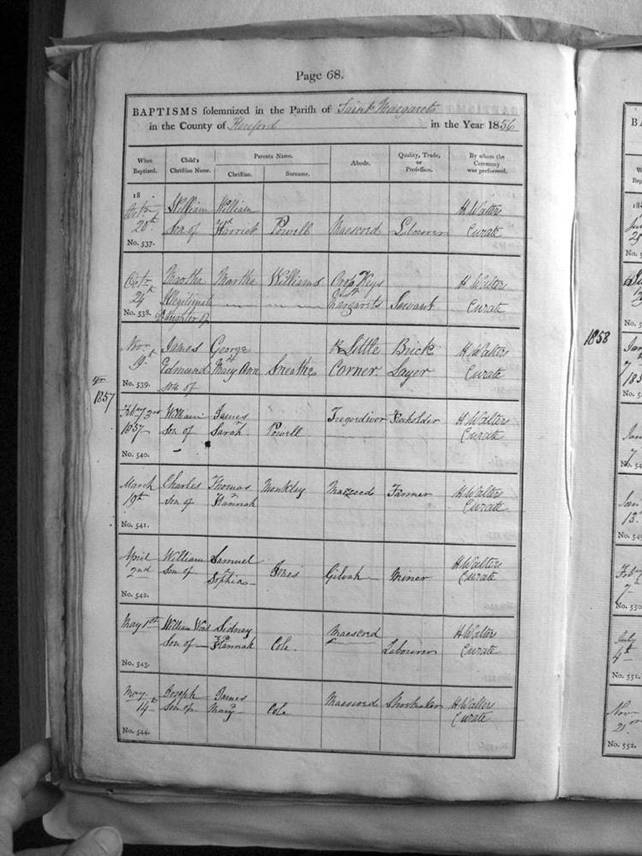 Page 68.
BAPTISMS solemnized in the Parish of Saint Margarets
in the County of Hereford in the Year 1856
When Baptized. Child's Christian Name. Parents Name. Christian. Surname. Abode. Quality, Trade, or Profession. By whom the Ceremony was performed.
18
William William H Walter
20th Son of Powell Maescoed Curate
No. 537.
Octr Martha Martha Williams Cross Keys H Walter
24th Illegitimate St Margarets Servant Curate
No. 538. Daughter of
Novr James George & Little Brick H Walter
9th Edmund Mary Ann Corner Layer Curate
No. 539. son of
1857
Feby 3rd William James H Walter
1857 Son of Sarah Powell Curate
No. 540.
March Charles Thomas Monkley Maescoed Farmer H Walter
19th Son of Hannah Curate
No. 541.
April William Samuel H Walter
2nd Son of Sophia Jones Gilvah Miner Curate
No. 542.
May 1st William Sidney Maescoed H Walter
Son of Hannah Cole Labourer Curate
No. 543.
May Joseph James Maescoed Shoemaker H Walter
14th Son of Mary Cole Curate
No. 544.
1858
No. 551.
Novr
21st
No. 552.